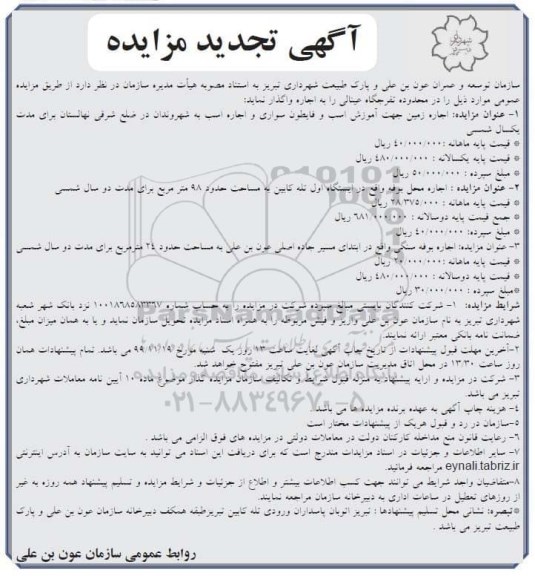 آگهی تجدید مزایده
سازمان توسعه و عمران عون بن علی و پارک طبیعت شهرداری تبریز به استناد مصوبه هیأت مدیره سازمان در نظر دارد از طریق مزایده
عمومی موارد ذیل را در محدوده تفرجگاه عینالی را به اجاره واگذار نماید:
۱- عنوان مزایده: اجاره زمین جهت آموزش اسب و فایطون سواری و اجاره اسب به شهروندان در ضلع شرقی نهالستان برای مدت
یکسال شمسی
* قیمت پایه ماهانه : ۴۰/۰۰۰/۰۰۰ ریال
* قیمت پایه یکسالانه : ۴۸۰/۰۰۰/۰۰۰ ریال
* مبلغ سپرده : ۵۰/۰۰۰/۰۰۰ ریال
۲- عنوان مزایده : اجاره محل بوفه واقع در ایستگاه اول تله کابین به مساحت حدود ۹۸ متر مربع برای مدت دو سال شمسی
* قیمت پایه ماهانه : ۲۸/۳۷۵/۰۰۰ ریال
* جمع قیمت پایه دوسالانه : ۶۸۱/۰۰۰/۰۰۰ ریال
* مبلغ سپرده: ۴۰/۰۰۰/۰۰۰ ریال
۳- عنوان مزایده: اجاره بوفه سنگی واقع در ابتدای مسیر جاده اصلی عون بن علی به مساحت حدود ۲۴ مترمربع برای مدت دو سال شمسی
* قیمت پایه ماهانه: ۲۰/۰۰۰/۰۰۰ ریال
* قیمت پایه دوسالانه : ۴۸۰/۰۰۰/۰۰۰ ریال
* مبلغ سپرده : ۳۰/۰۰۰/۰۰۰ ریال
شرایط مزایده: ۱- شرکت کنندگان بایستی مبالغ سپرده شرکت در مزایده را به حساب شماره ۱۰۰۱۸۶۸۵۸۳۳۶۷ نزد بانک شهر شعبه
شهرداری تبریز به نام سازمان عون بن علی واریز و فیش مربوطه را به همراه اسناد مزایده تحویل سازمان نماید و یا به همان میزان مبلغ،
ضمانت نامه بانکی معتبر ارائه نمایند
۲-آخرین مهلت قبول پیشنهادات از تاریخ چاپ آگهی لغایت ساعت ۱۳ روز یک شنبه مورخ می باشد. تمام پیشنهادات همان
روز ساعت ۱۳:۳۰ در محل اتاق مدیریت سازمان عون بن علی تبریز مفتوح خواهد شد.
۳- شرکت در مزایده و ارایه پیشنهاد به منزله قبول شرایط و تکالیف سازمان مزایده گذار موضوع ماده ۱۰ آیین نامه معاملات شهرداری
تبریز می باشد.
۴- هزینه چاپ آگهی به عهده برنده مزایده ها می باشد.
۵-سازمان در رد و قبول هریک از پیشنهادات مختار است
۶- رعایت قانون منع مداخله کارکنان دولت در معاملات دولتی در مزایده های فوق الزامی می باشد .
۷- سایر اطلاعات و جزئیات در اسناد مزایدات مندرج است که برای دریافت این اسناد می توانید به سایت سازمان به آدرس اینترنتی
eynali.tabriz.ir مراجعه فرمائید.
۸-متقاضیان واجد شرایط می توانند جهت کسب اطلاعات بیشتر و اطلاع از جزئیات و شرایط مزایده و تسلیم پیشنهاد همه روزه به غیر
از روزهای تعطیل در ساعات اداری به دبیرخانه سازمان مراجعه نمایند.
*تبصره: نشانی محل تسلیم پیشنهادها : تبریز اتوبان پاسداران ورودی تله کابین تبریزطبقه همکف دبیرخانه سازمان عون بن علی و پارک
طبیعت تبریز می باشد .
روابط عمومی سازمان عون بن علی
ParsNamadData
۰۲۱-۸۸۳۴۹۶۷۰-۵